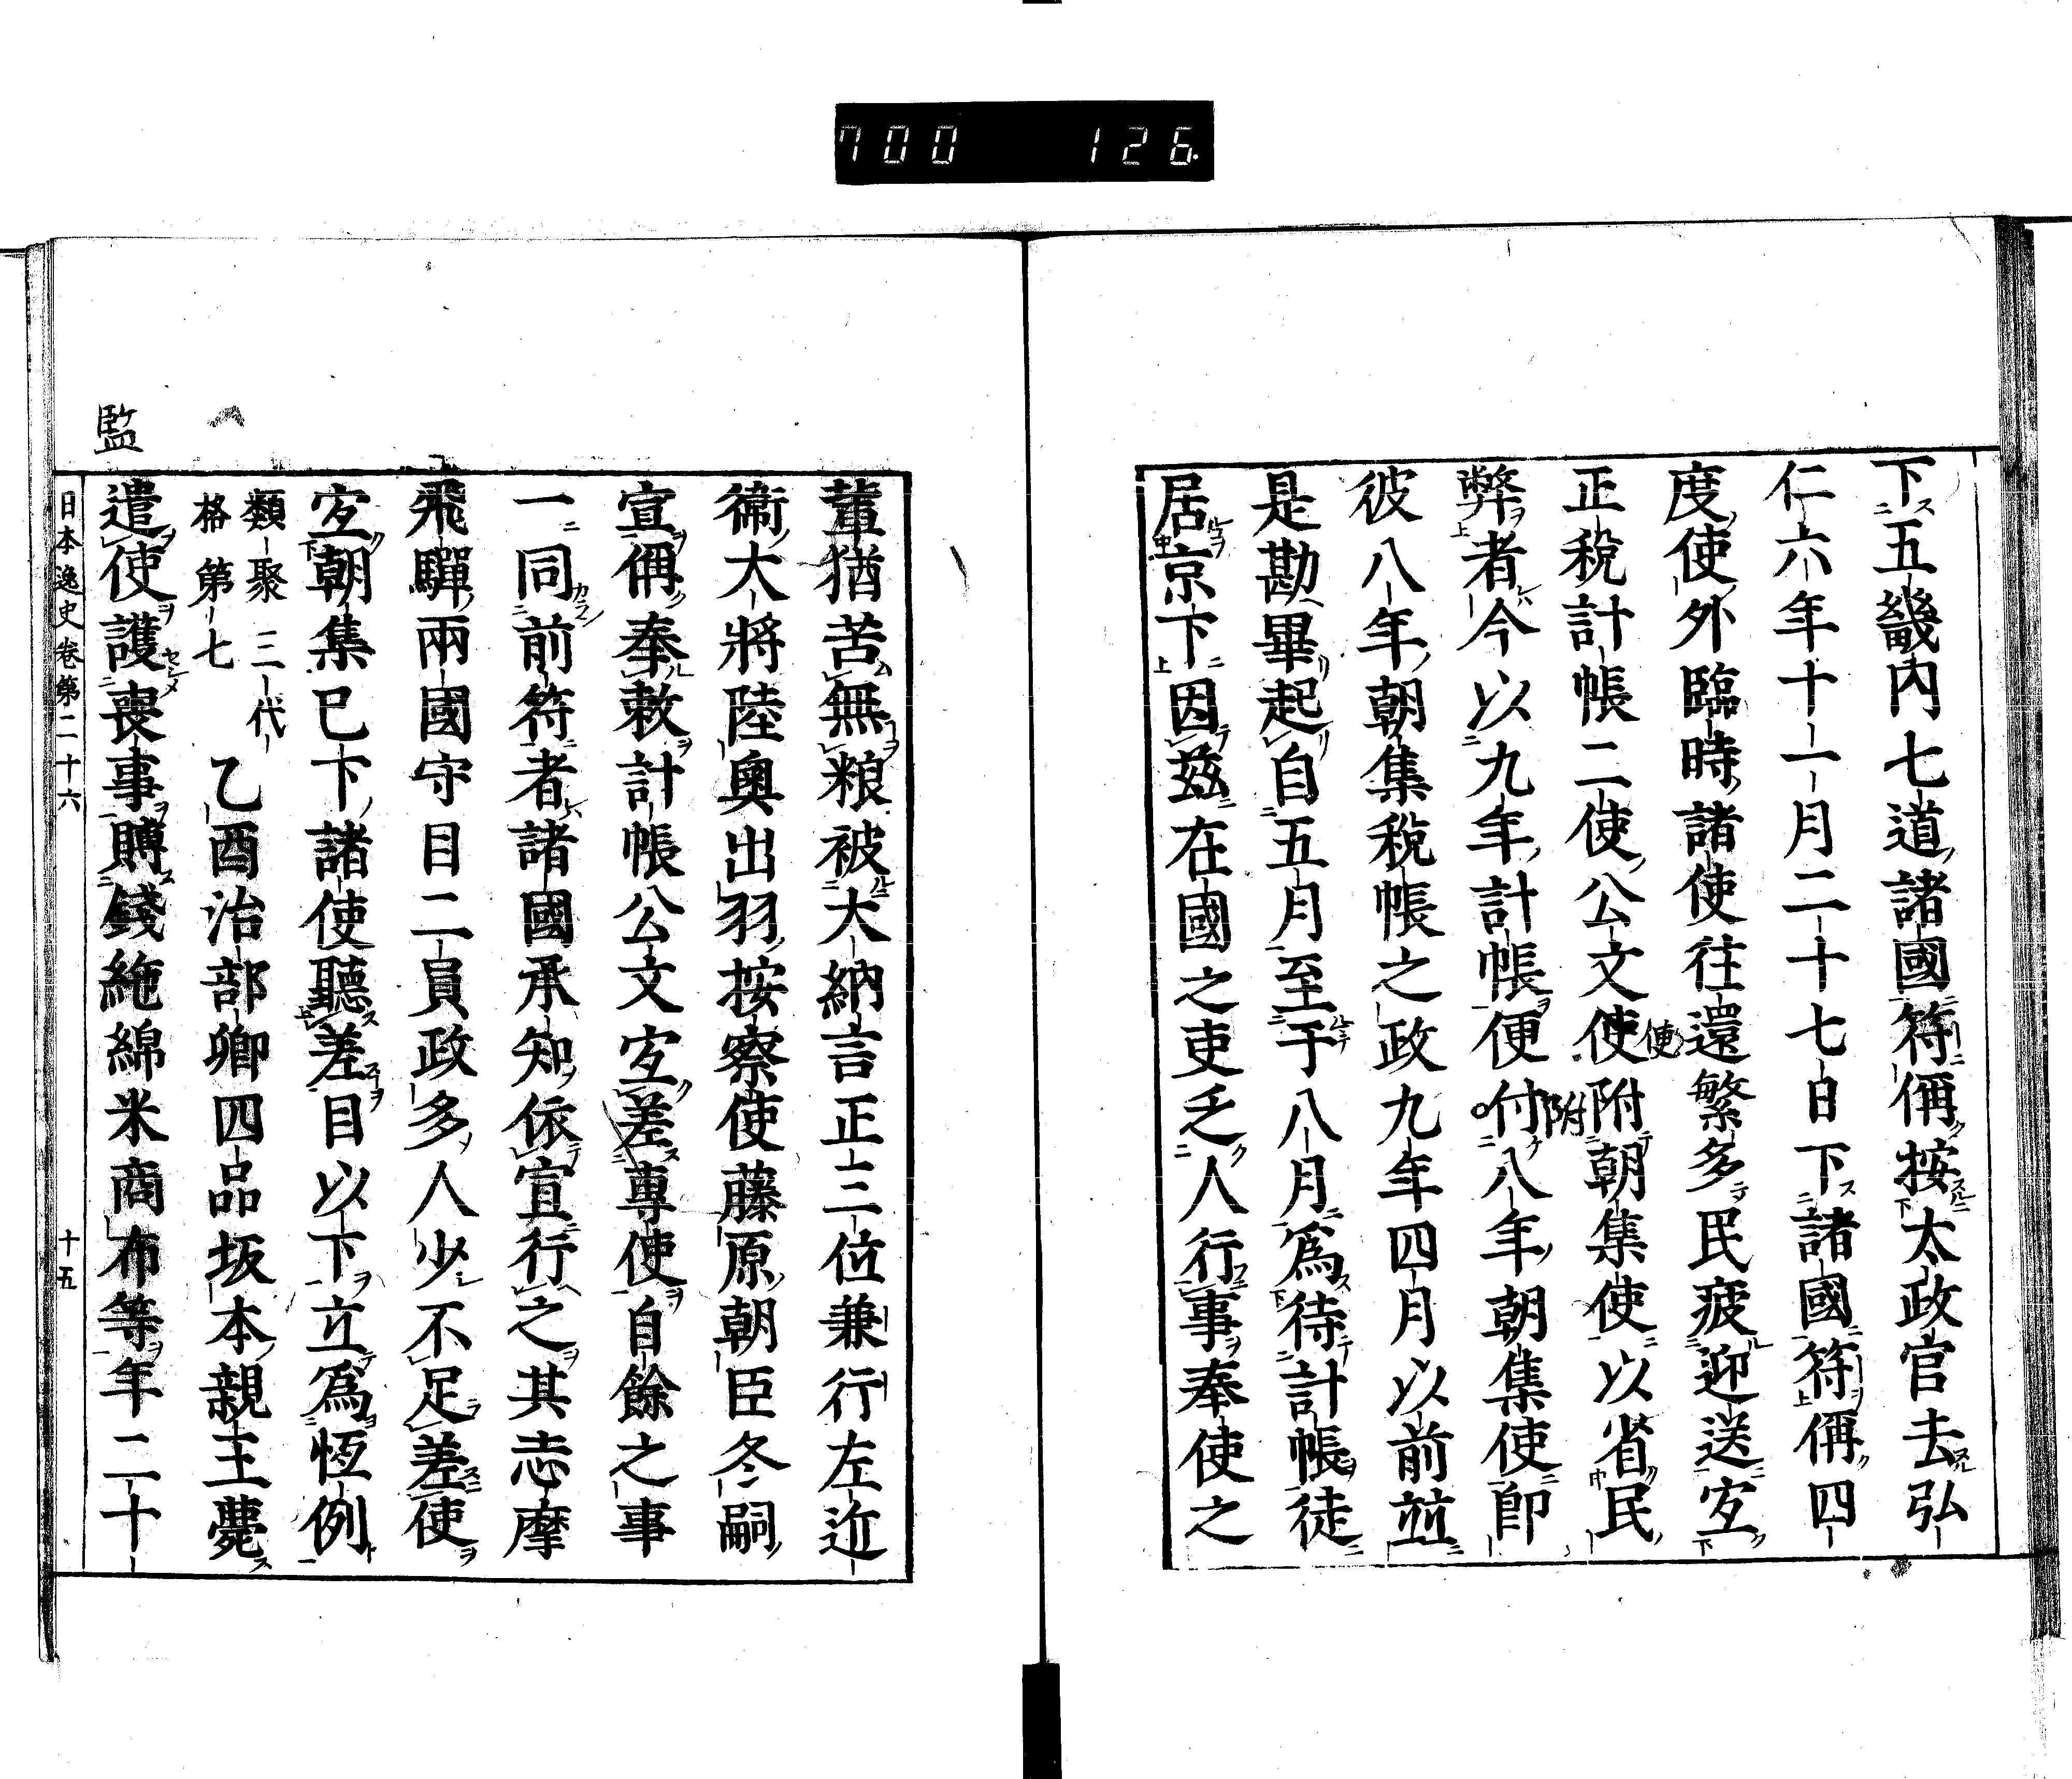 700 126.
下五畿内七道諸國符偁按太政官去弘
仁六年十一月二十七日下諸國符偁四
度使外臨時諸使往還繁多民疲迎送宐
正稅計帳二使公文使附朝集使以省民
便
弊者今以九年計帳便付八年朝集使即
附
彼八年朝集稅帳之政九年四月以前並
是勘畢起自五月至于八月爲待計帳徒
居京下因茲在國之吏乏人行事奉使之
輩猶苦無粮被大納言正三位兼行左近
衞大將陸奧出羽按察使藤原朝臣冬嗣
宣偁奉敕計帳公文宐差專使自餘之事
一同前符者諸國承知依宣行之其志摩
飛驒兩國守目二員政多人少不足差使
宐朝集已下諸使聽差目以下立爲恆例
類聚三代
格第七
乙酉治部卿四品坂本親王薨
遣使護喪事賻錢絁綿米商布等年二十
監
日本逸史卷第二十六 十五